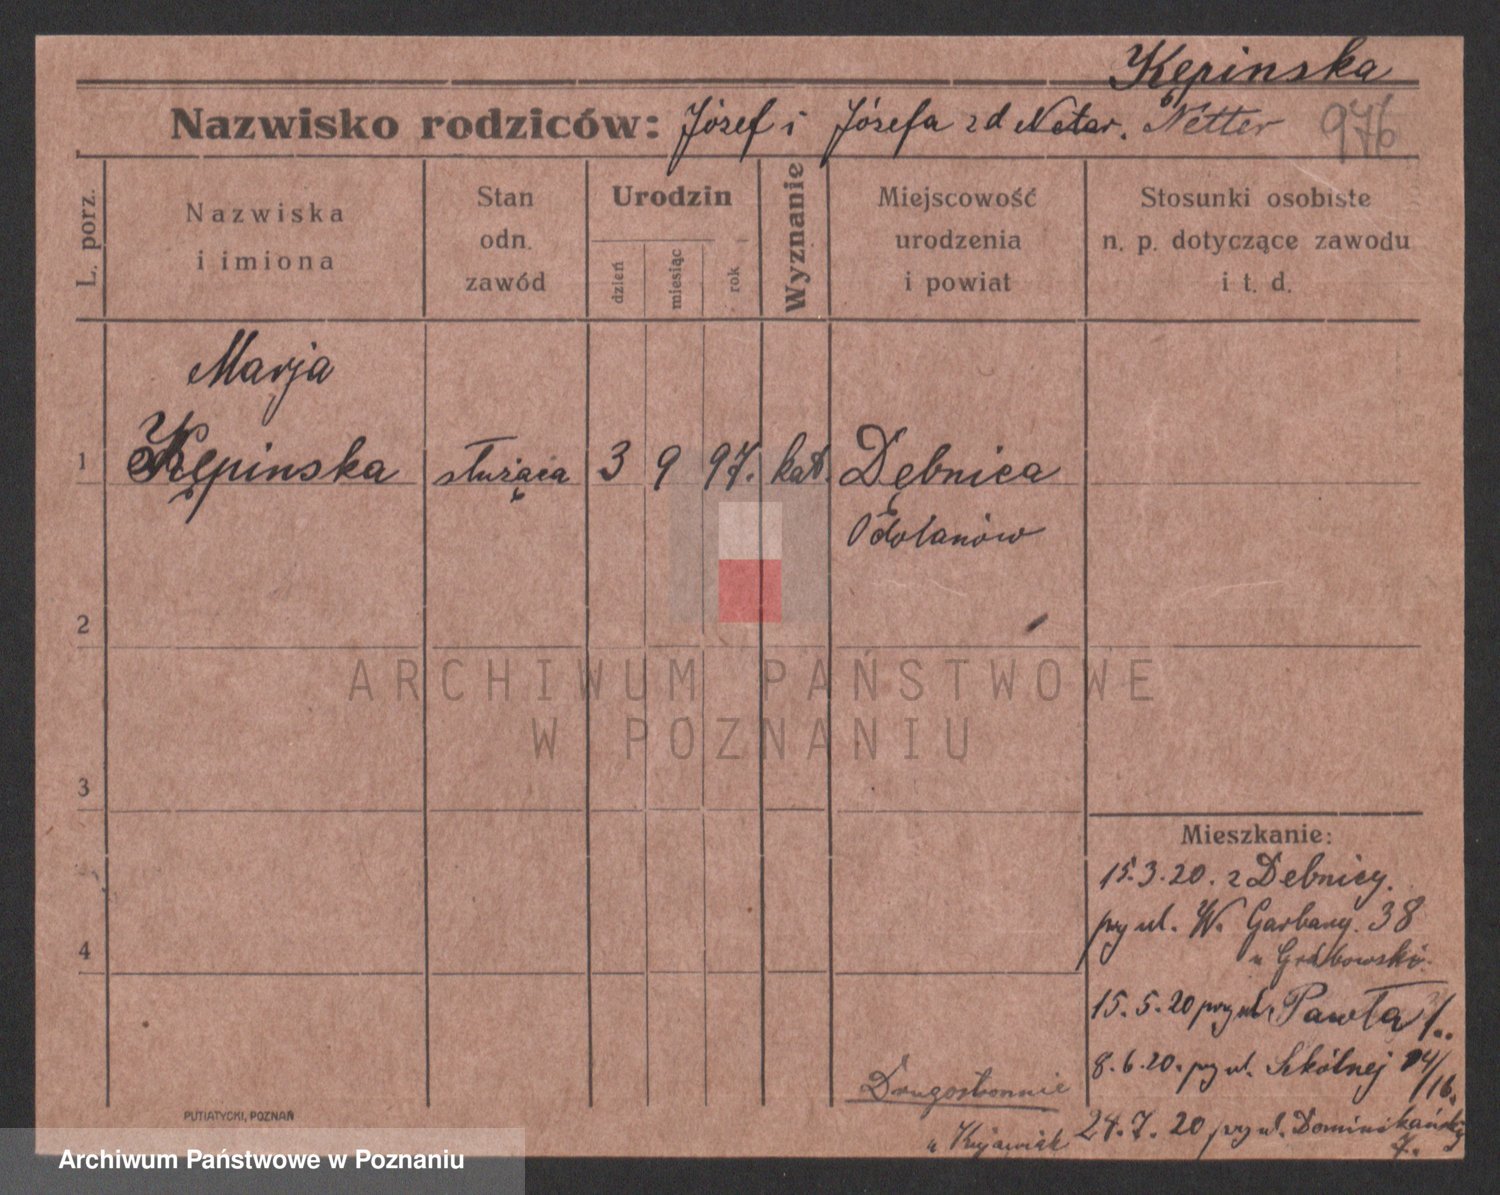 Kępinska
Nazwisko rodziców: Józef i Józefa zd Netar. Netter 976
L. porz.
Nazwiska
i imiona
Stan
odn.
zawód
Urodzin
dzień
miesiąc
rok
Wyznanie
Miejscowość
urodzenia
i powiat
Stosunki osobiste
n. p. dotyczące zawodu
i t. d.
Marja
1 Kępinska służąca 3 9 97. kat. Dębnica
Odolanów
2
ARCHIWUM PAŃSTWOWE
W POZNANIU
3
Mieszkanie:
15.3.20. z Debnicy.
przy ul. W. Garbary. 38
u Grabowski.
4
15.5.20 przy ul. Pawła 1..
8.6.20. przy ul. Szkólnej 14/
16.
24.7.20 przy ul. Dominikańskiej
7.
u Kujawiak
PUTIATYCKI, POZNAŃ
Archiwum Państwowe w Poznaniu